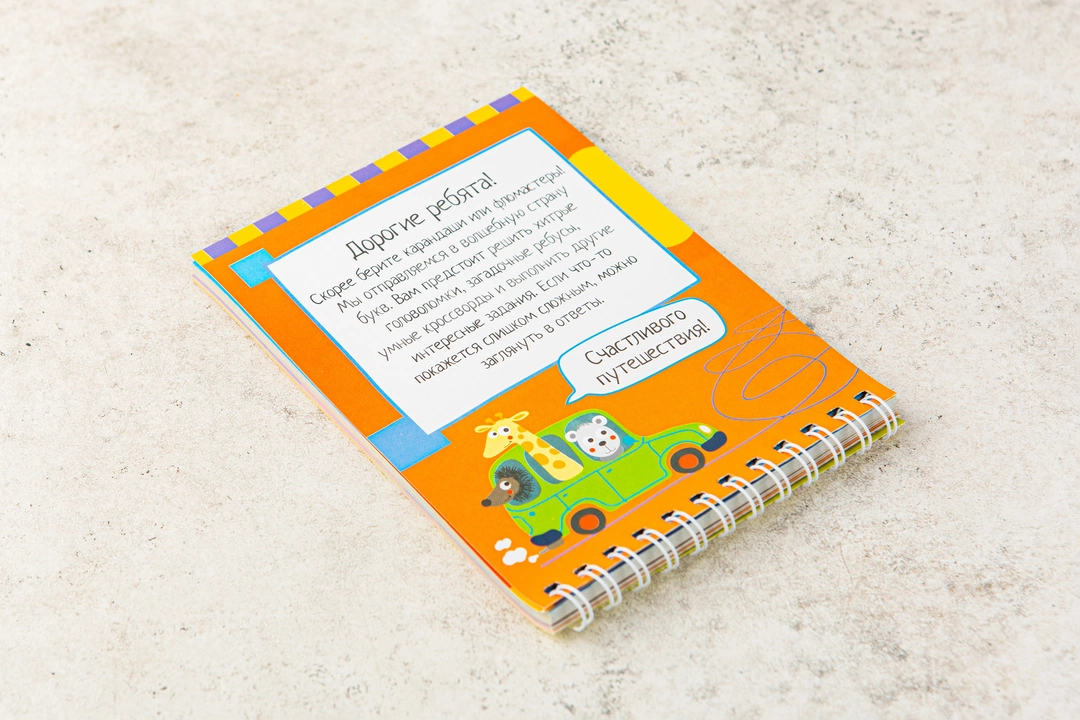 Дорогие ребята!
Скорее берите карандаши или фломастеры!
Мы отправляемся в волшебную страну
букв. Вам предстоит решить хитрые
головоломки, загадочные ребусы,
умные кроссворды и выполнить другие
интересные задания. Если что-то
покажется слишком сложным, можно
заглянуть в ответы.
Счастливого
путешествия!